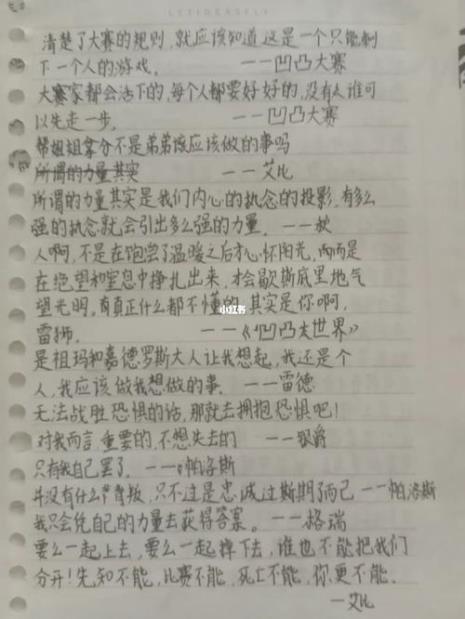 清楚了大赛的规则，就应该知道这是一个只能剩
下一个人的游戏。 ——凹凸大赛
大赛家都会活下的，每个人都要好好的，没有人谁可
以先走一步。 ——凹凸大赛
帮姐姐拿分不是弟弟该应该做的事吗
所谓的力量其实 ——艾比
所谓的力量其实是我们内心的执念的投影，有多么
强的执念就会引出多么强的力量。 ——秋
人啊，不是在饱尝了温暖之后才心怀阳光，而而是
在绝望和窒息中挣扎出来，才会歇斯底里地气
望光明，有真正什么都不懂的，其实是你啊，
雷狮。 ——《凹凸大世界》
是祖玛和嘉德罗斯大人让我想起，我还是个
人，我应该做我想做的事。 ——雷德
无法战胜恐惧的话，那就去拥抱恐惧吧！
对我而言，重要的，不想失去的 ——银爵
只有我自己罢了。 ——帕洛斯
并没有什么背叛，只不过是忠诚过期了而已 ——帕洛斯
我只会凭自己的力量去获得答案。 ——格瑞
要么一起上去，要么一起掉下去，谁也不能把我们
分开！先知不能，比赛不能，死亡不能，你更不能。
—艾比
小红书